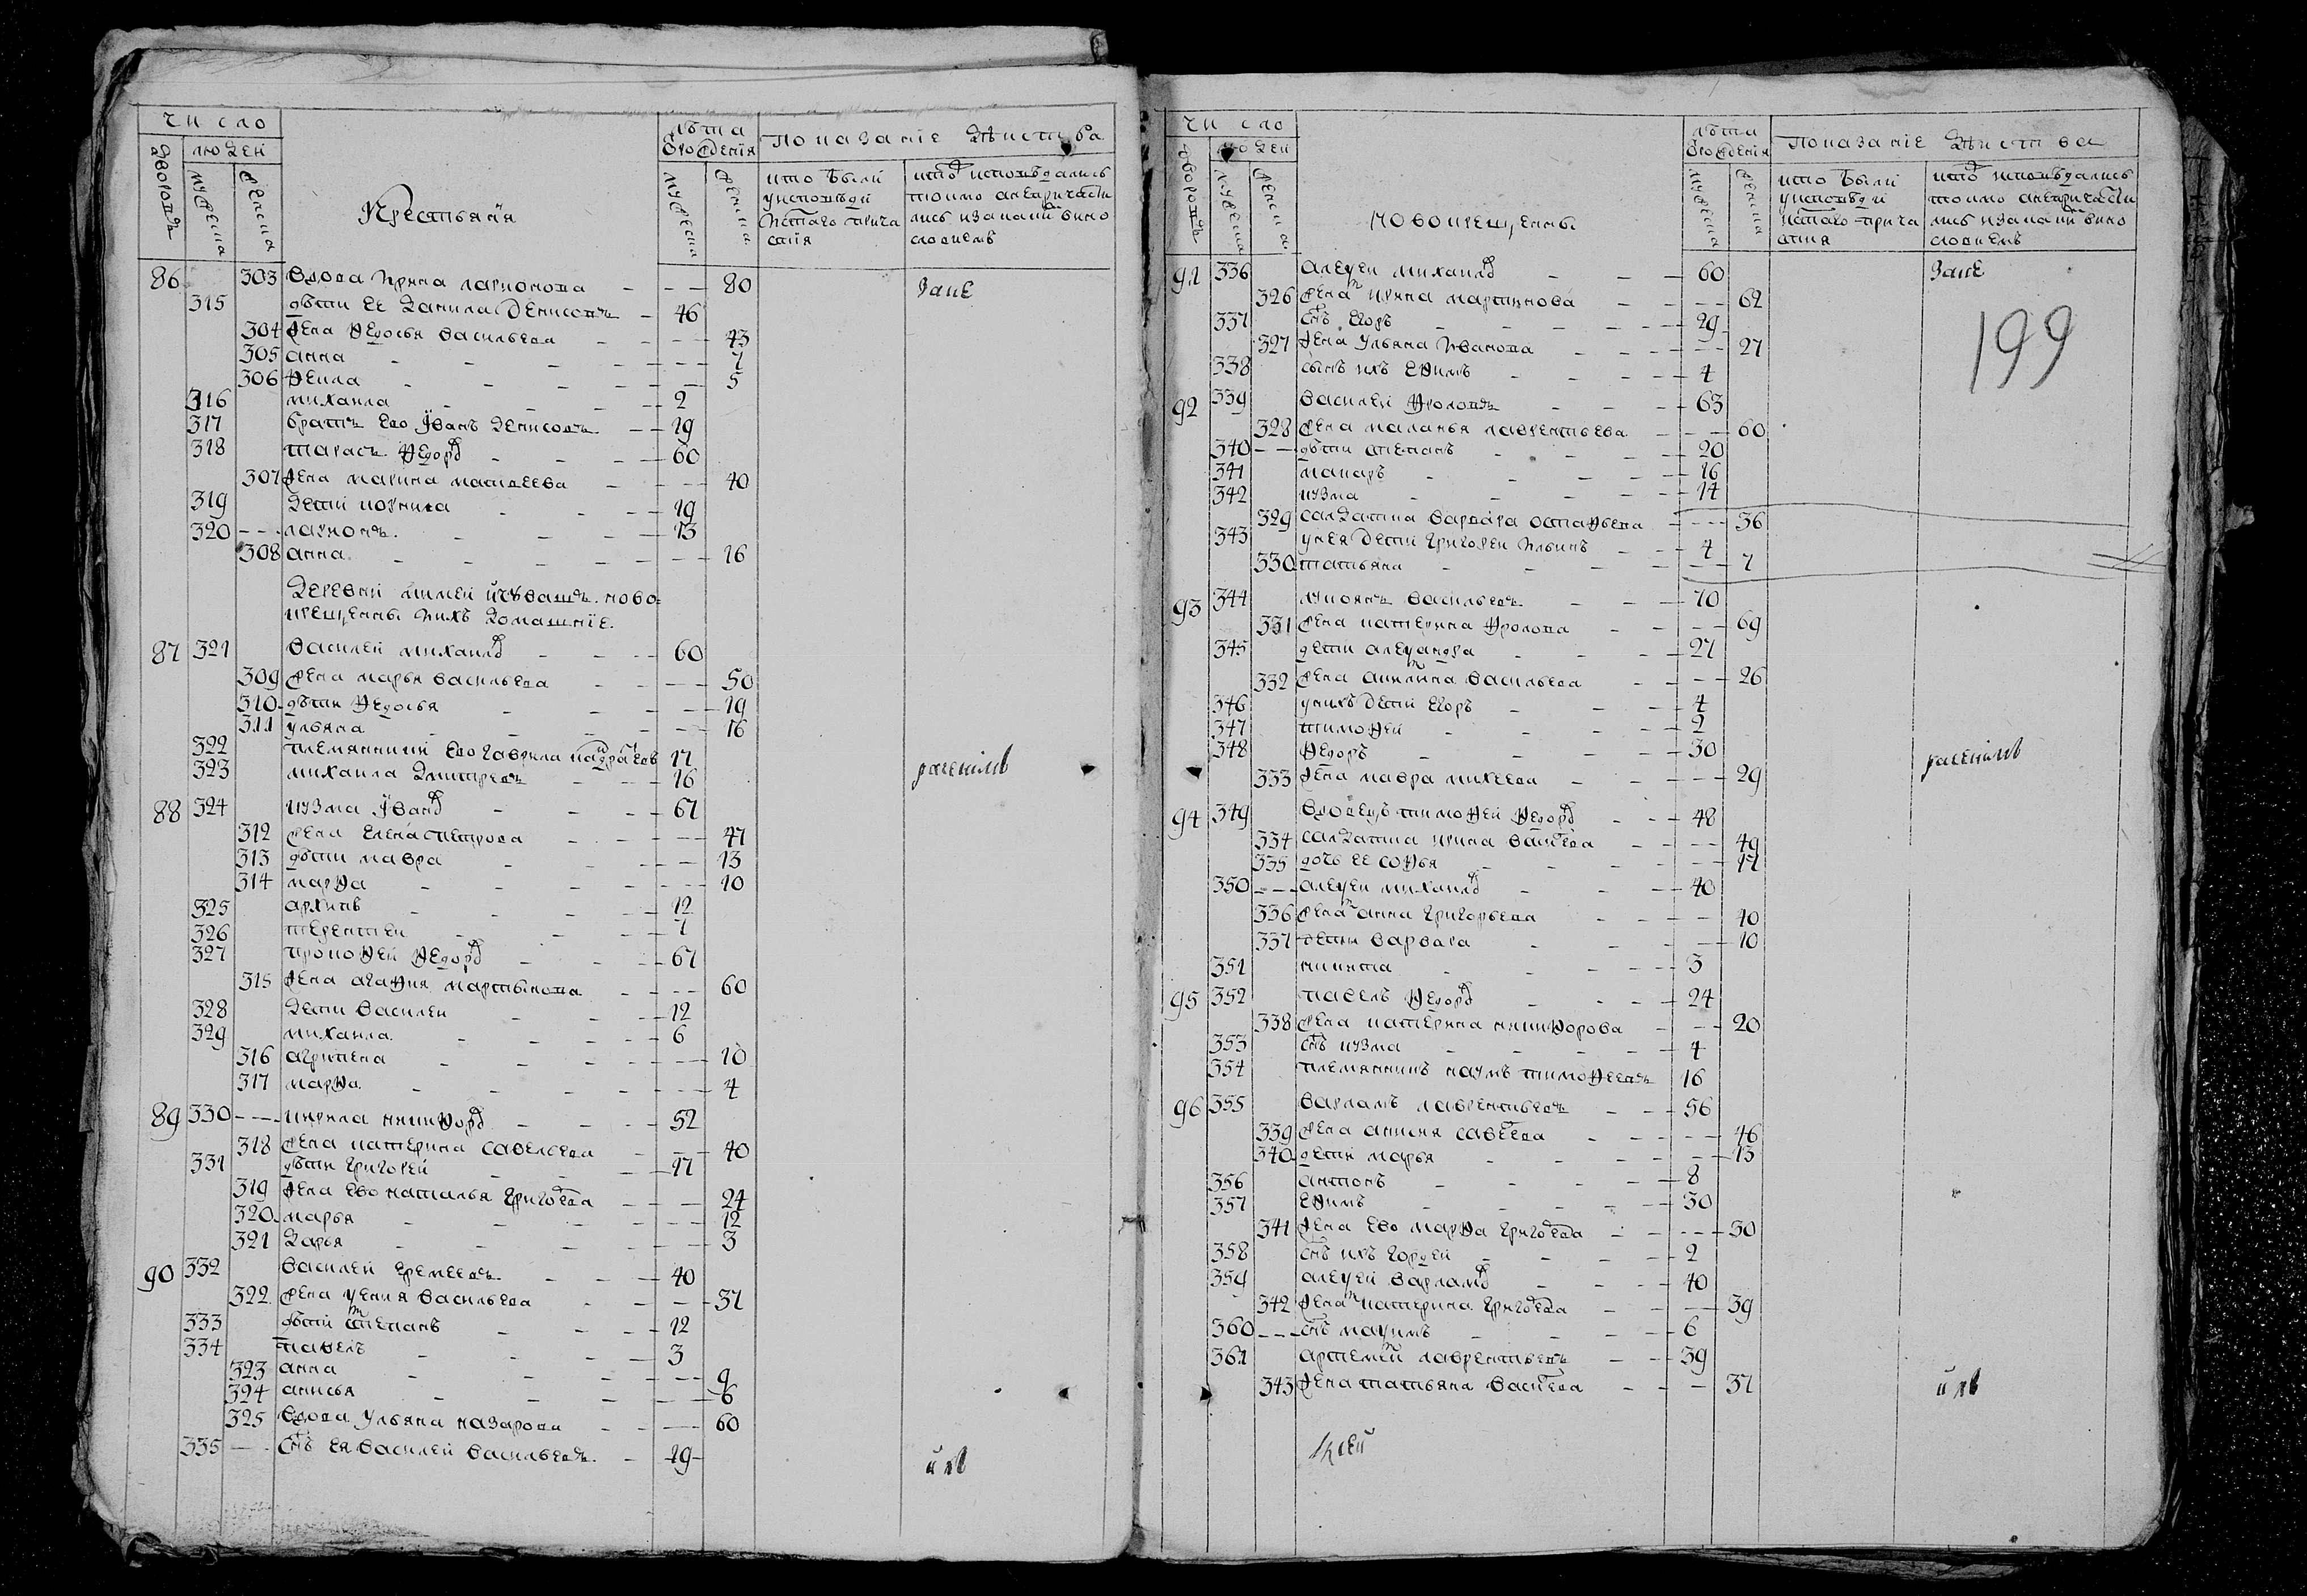 число
людей
дворовъ
мужеска
женска
Крестьяня
лѣта
Ѿрожденїя
мужеска
женска
Показанїе Дѣиства
кто были
у исповѣди
и стаго прича
стия
кто исповѣдались
токмо а не причасти
лись и за какй вино
словиемъ
86 303 Вдова Ирина ларионова 80 Зане
315 дѣти ее Данила Денисовъ 46
304 Жена Ѳедосья васильева 43
305 анна 7
306 Ѳекла 5
316 михаила 2
317 братъ Ево Ïванъ Денисовъ 19
318 тарасъ Ѳедоро 60
307 Жена марина матѳеева 40
319 Дети корнила 19
320 ларионъ 13
308 анна 16
Деревни
ново
крещены и ихъ Домашнїе
87 321 василеи михаило 60
309 Жена марья васильева 50
310 дѣти Ѳедосья 19
311 ульяна 16
322 племянники Ево гаврила 17
323 михаила Дмитревъ 16
раскилъ
88 324 кузма Ïвано 67
312 Жена Елена петрова 47
313 дѣти мавра 13
314 марѳа 10
325 архипъ 12
326 терентеи 7
327 прокоѳеи Ѳедоро 67
315 Жена агаѳия мартынова 60
328 Дети василеи 12
329 михаила 6
316 агрипена 10
317 марѳа 4
89 330 кирила никиѳоро 52
318 Жена катерина савельева 40
331 дѣти григореи 17
319 Жена Ево наталья григоева 24
320 марья 12
321 Дарья 3
90 332 василеи Еремеевъ 40
322 Жена ѯения васильева 37
333 дѣти степанъ 12
334 павелъ 3
323 анна 9
324 анисья 6
325 вдова ульяна назарова 60
335 снъ Ея василеи васильевъ 19
число
людей
дворовъ
мужеска
женска
новокрещены
лѣта
Ѿрожденїя
мужеска
женска
Показанїе Дѣиства
кто были
у исповѣди
и стаго прича
стия
кто исповѣдались
токмо а не причасти
лись и за какй вино
словиемъ
91 336 алеѯеи михаило 60 Зане
326 Жена ирина мартинова 62
199
337 снъ Егоръ 29
327 Жена ульяна Иванова 27
338 сынъ ихъ Еѳимъ 4
92 339 василеи Ѳроловъ 63
328 Жена маланья лаврентьева 60
340 дѣти степанъ 20
341 макаръ 16
342 кузма 14
329 салдатка варвара остаѳьева 36
343 у нея Дети григореи Ильинъ 4
330 татьяна 7
93 344 лукоянъ васильевъ 70
331 Жена катерина Ѳролова 69
345 дети алеѯандра 27
332 Жена акилина васильева 26
346 у нихъ Дети Егоръ 4
347 тимоѳеи 2
348 Ѳедоръ 30
333 Жена мавра михеева 29
раскилъ
94 349 вдовецъ тимоѳеи Ѳедоро 48
334 салдатка ирина васиева 49
335 дочь ее соѳья 17
350 алеѯеи михаило 40
336 Жена анна григорьева 40
337 дети варвара 10
351 никита 3
95 352 павелъ Ѳедоро 24
338 Жена катерина никиѳорова 20
353 снъ кузма 4
354 племянникъ наумъ тимоѳеевъ 16
96 355 варламъ лаврентьевъ 56
339 Жена анисия савеева 46
340 дети марья 13
356 антонъ 8
357 Еѳимъ 30
341 Жена Ево марѳа григоева 30
358 снъ ихъ гордеи 2
359 алеѯеи варламо 40
342 Жена катерина григоева 39
360 снъ маѯимъ 6
361 артемеи лаврентьевъ 39
343 Жена татьяна васиева 37